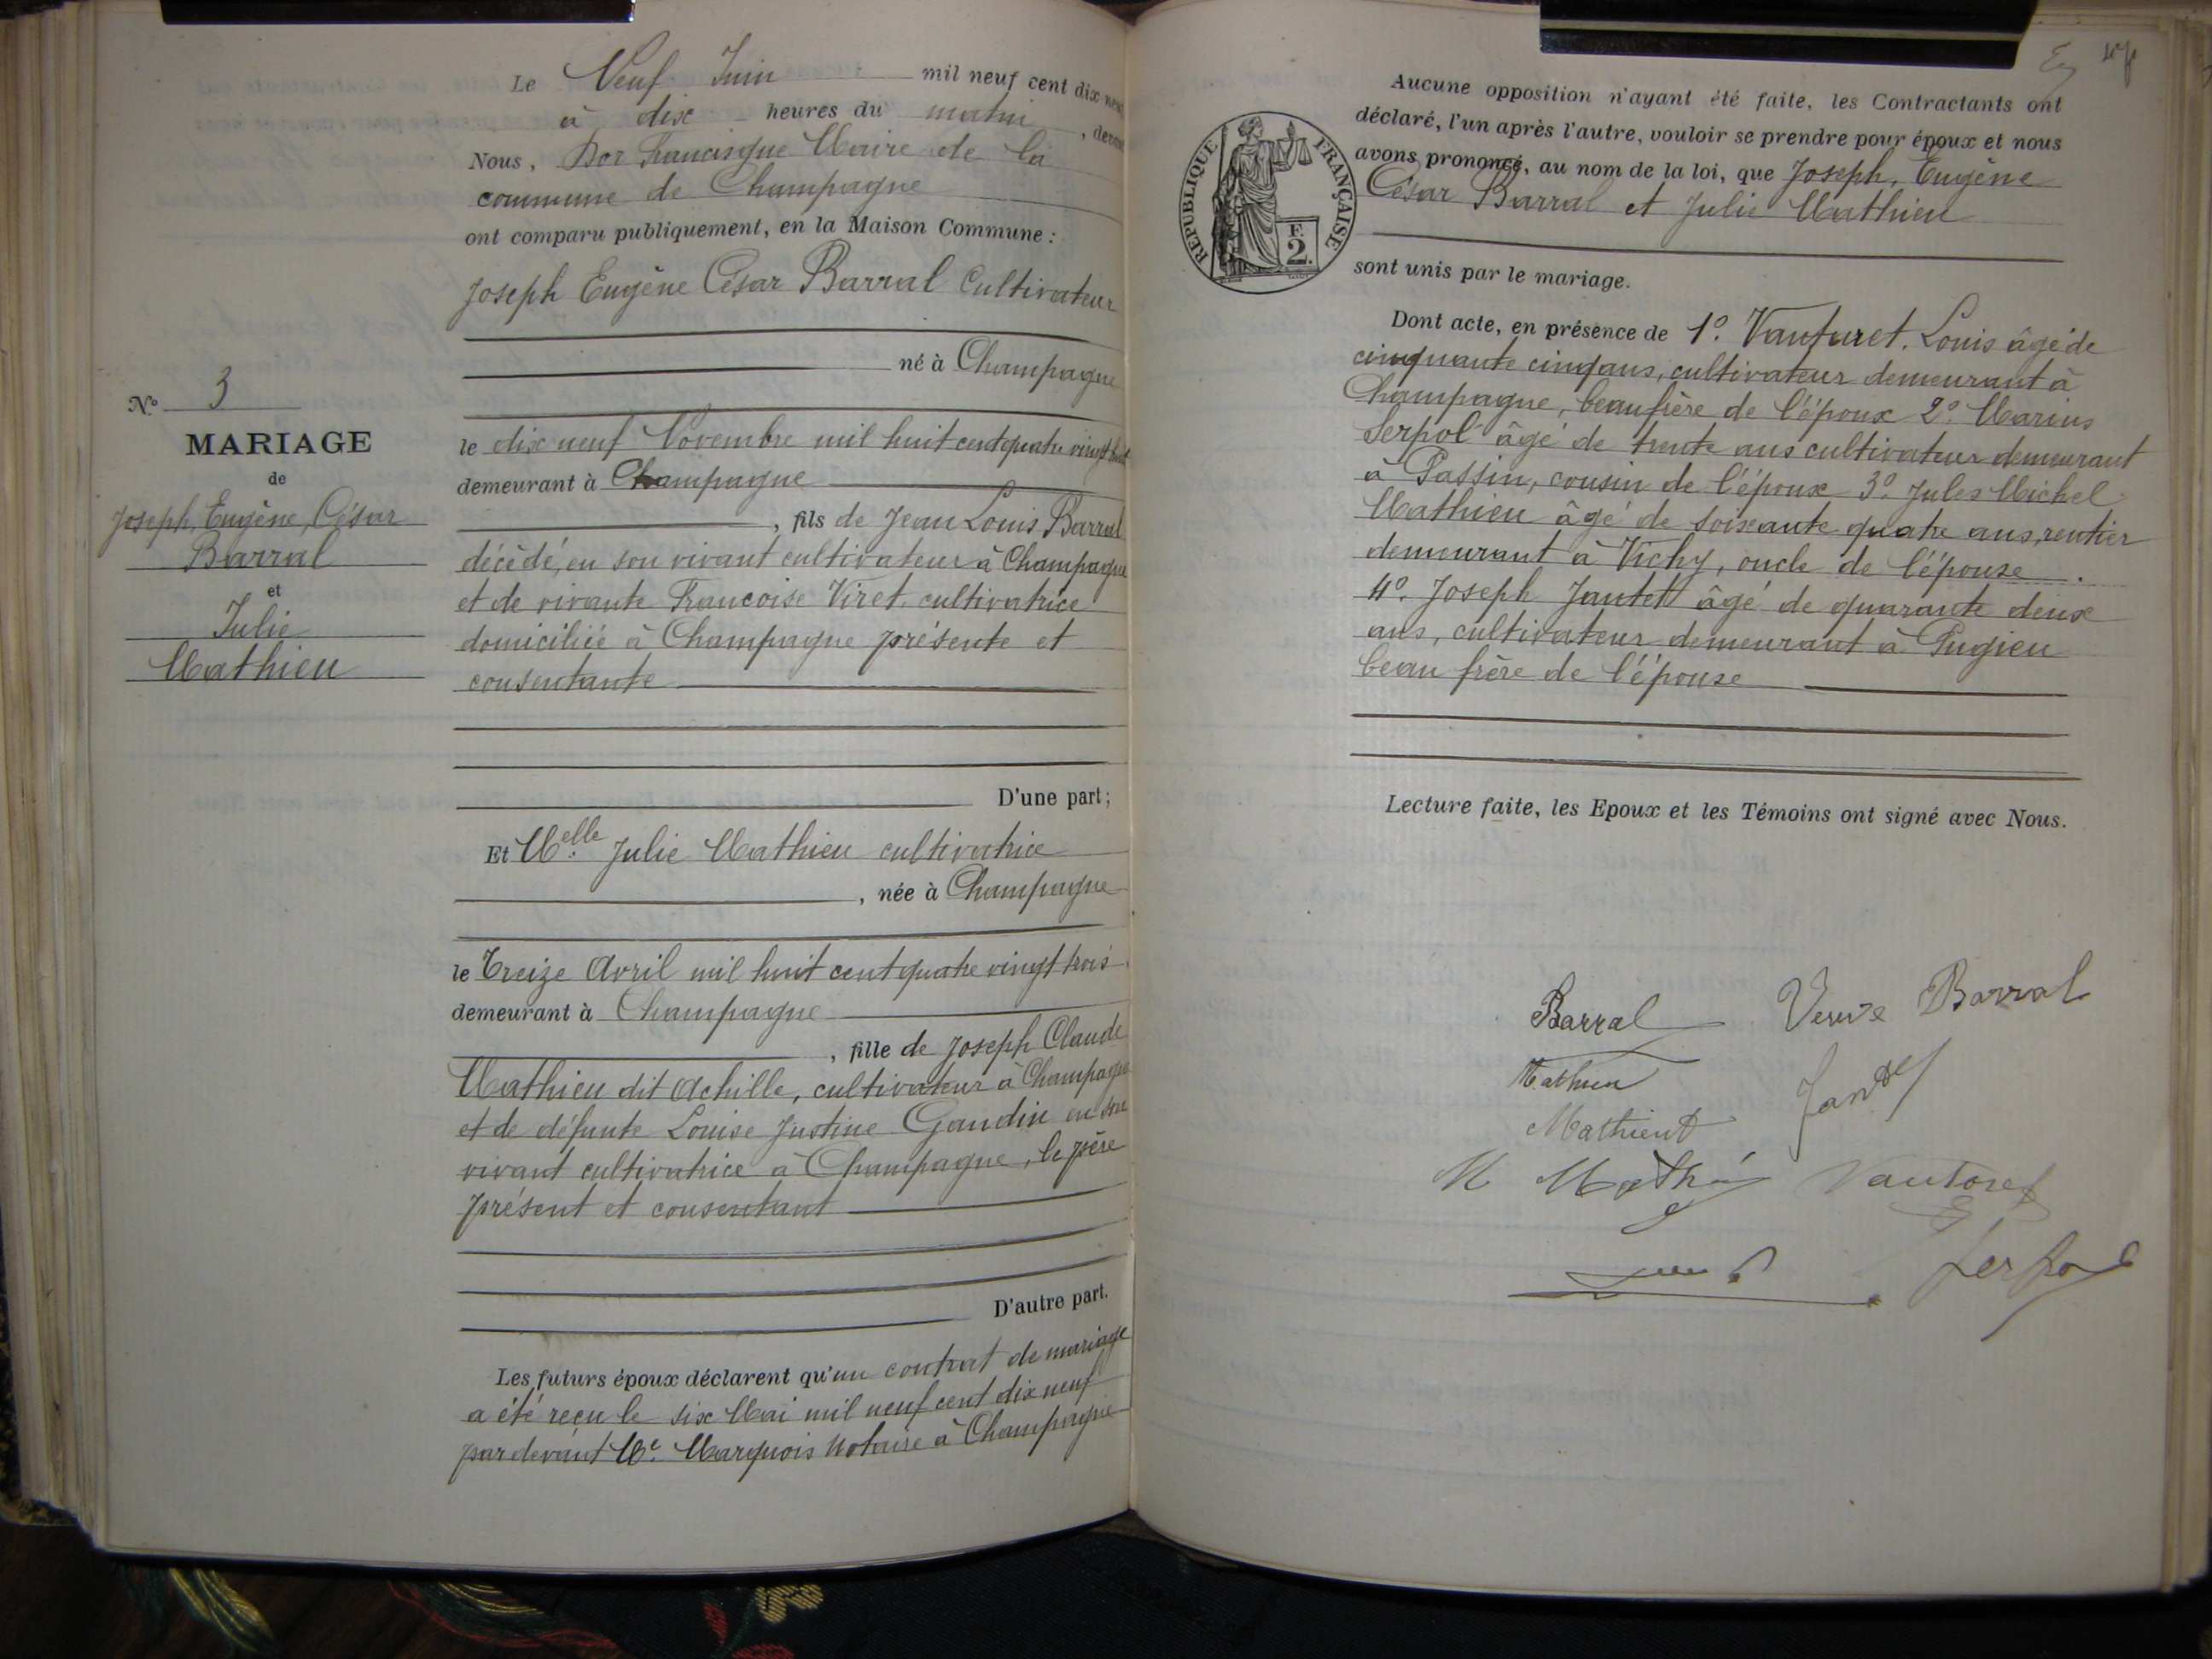 Le Neuf Juin mil neuf cent dix-neuf
à dix heures du matin, devant
Nous, Bor Francisque Maire de la
commune de Champagne
ont comparu publiquement, en la Maison Commune :
Joseph Eugène César Barral Cultivateur
né à Champagne
le dix neuf Novembre mil huit cent quatre vingt huit
demeurant à Champagne
, fils de Jean Louis Barral
décédé, en son vivant cultivateur à Champagne
et de vivante Francoise Viret cultivatrice
domiciliée à Champagne présente et
consentante
D'une part ;
Et Melle Julie Mathieu cultivatrice
, née à Champagne
le Treize Avril mil huit cent quatre vingt trois
demeurant à Champagne
, fille de Joseph Claude
Mathieu dit Achille, cultivateur à Champagne
et de défunte Louise Justine Gaudin en son
vivant cultivatrice à Champagne, le père
présent et consentant
D'autre part.
Les futurs époux déclarent qu'un contrat de mariage
a été reçu le six Mai mil neuf cent dix neuf
par devant Me. Marquois Notaire à Champagne
No 3
MARIAGE
de
Joseph, Eugène, César
Barral
et
Julie
Mathieu
RÉPUBLIQUE FRANÇAISE
F.
2.
Aucune opposition n'ayant été faite, les Contractants ont
déclaré, l'un après l'autre, vouloir se prendre pour époux et nous
avons prononcé, au nom de la loi, que Joseph, Eugène
César Barral et Julie Mathieu
sont unis par le mariage.
Dont acte, en présence de 1o. Vauturet. Louis âgé de
cinquante cinq ans, cultivateur demeurant à
Champagne, beau frère de l'époux 2o. Marius
Serpol âgé de trente ans cultivateur demeurant
à Passin, cousin de l'époux 3o. Jules Michel
Mathieu âgé de soixante quatre ans, rentier
demeurant à Vichy, oncle de l'épouse.
4o. Joseph Jantet âgé de quarante deux
ans, cultivateur demeurant à Pugieu
beau frère de l'épouse
Lecture faite, les Epoux et les Témoins ont signé avec Nous.
Barral Veuve Barral
Mathieu
Mathieu
Vautoret
Serpol